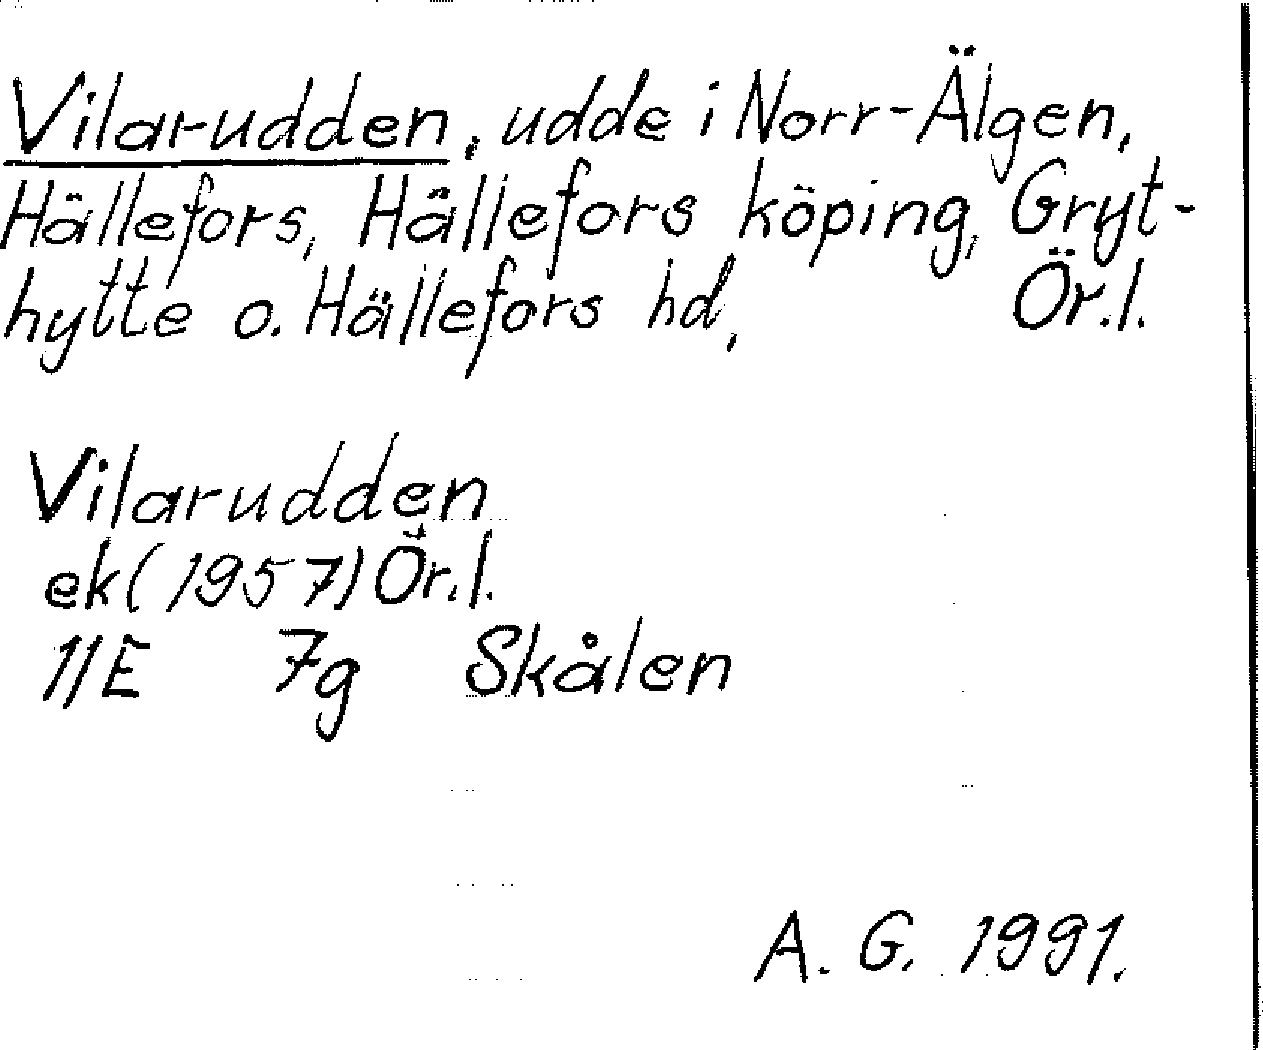 Vilarudden, udde i Norr-Älgen,
Hällefors, Hällefors köping, Gryt-
hytte o. Hällefors hd, Ör.l.
Vilarudden
ek (1957) Ör.l.
11E 7g Skålen
A. G. 1991.